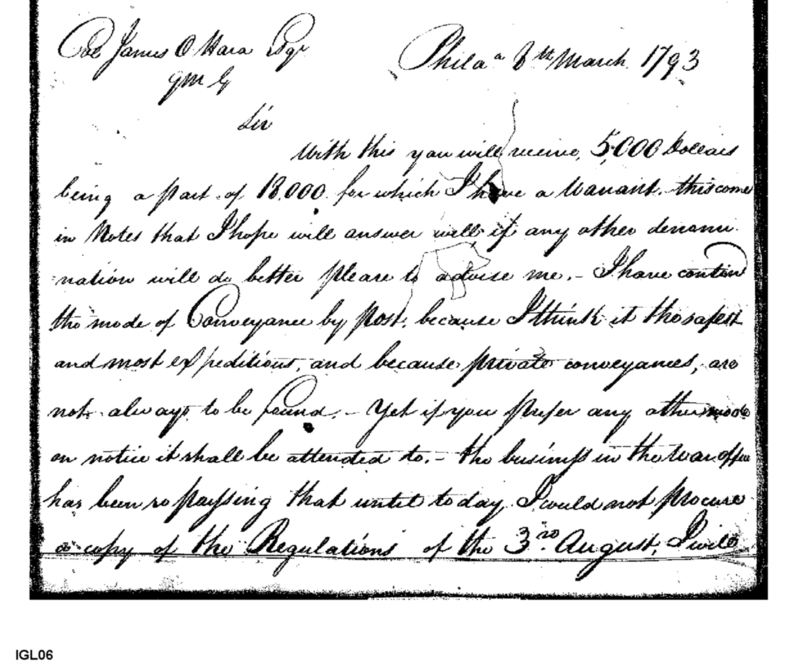 Col James O Hara Esqr
Phila a 8th March 1793
QM G
Sir
With this you will receive, 5,000 Dollars
being a part of 18,000 for which I have a Warrant. this come
in Notes that I hope will answer well. if any other denomi
nation will do better please to advise me. - I have contin
the mode of Conveyance by post, because I think it the safest
and most expeditious, and because private conveyances, are
not always to be found. - Yet if you prefer any other mode
on notice it shall be attended to. - the business in the War office
has been so pressing that until today I could not procure
a copy of the Regulations of the 3rd August, I will
IGL06